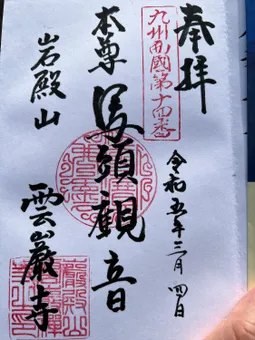 奉拝
九州西國第十四番
令和五年三月四日
本尊 馬頭観音
岩殿山 雲巌寺